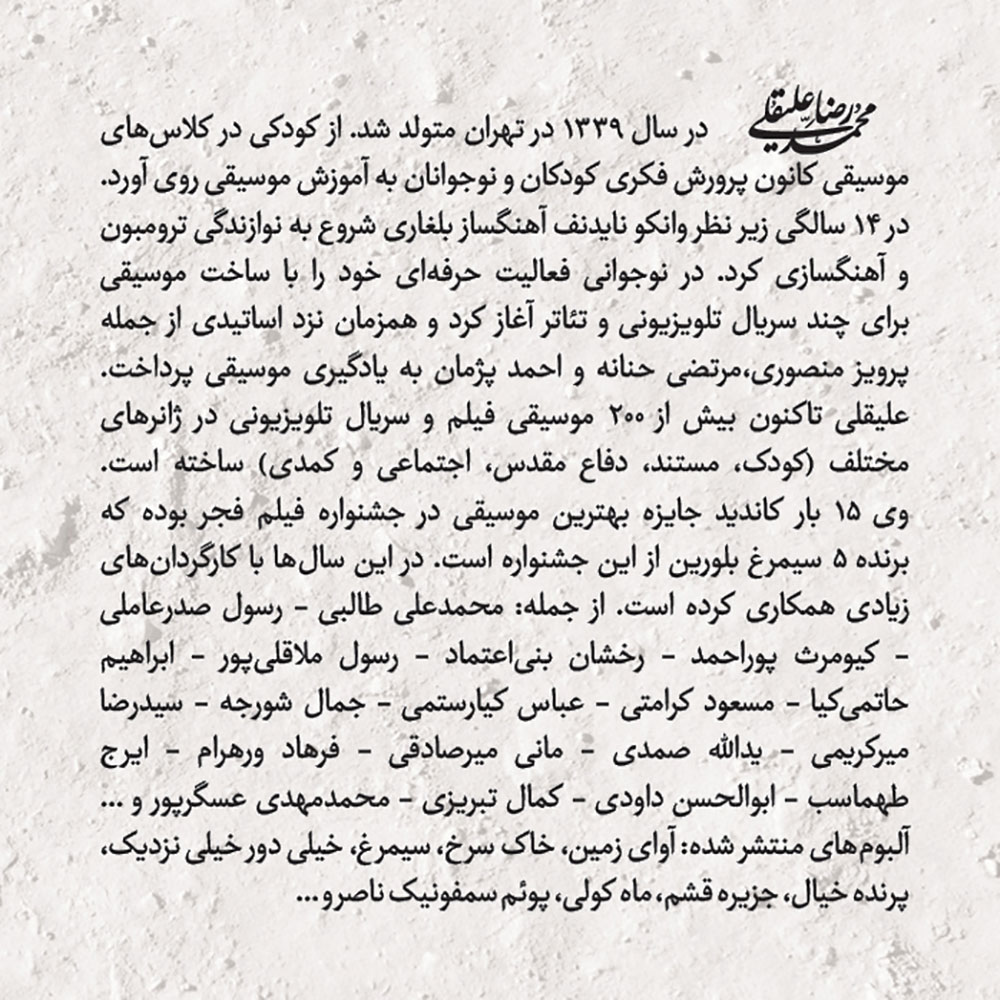 محمدرضا علیقلی در سال ۱۳۳۹ در تهران متولد شد. از کودکی در کلاس‌های
موسیقی کانون پرورش فکری کودکان و نوجوانان به آموزش موسیقی روی آورد.
در ۱۴ سالگی زیر نظر وانکو نایدنف آهنگساز بلغاری شروع به نوازندگی ترومبون
و آهنگسازی کرد. در نوجوانی فعالیت حرفه‌ای خود را با ساخت موسیقی
برای چند سریال تلویزیونی و تئاتر آغاز کرد و همزمان نزد اساتیدی از جمله
پرویز منصوری،مرتضی حنانه و احمد پژمان به یادگیری موسیقی پرداخت.
علیقلی تاکنون بیش از ۲۰۰ موسیقی فیلم و سریال تلویزیونی در ژانرهای
مختلف (کودک، مستند، دفاع مقدس، اجتماعی و کمدی) ساخته است.
وی ۱۵ بار کاندید جایزه بهترین موسیقی در جشنواره فیلم فجر بوده که
برنده ۵ سیمرغ بلورین از این جشنواره است. در این سال‌ها با کارگردان‌های
زیادی همکاری کرده است. از جمله: محمدعلی طالبی - رسول صدرعاملی
- کیومرث پوراحمد - رخشان بنی‌اعتماد - رسول ملاقلی‌پور - ابراهیم
حاتمی‌کیا - مسعود کرامتی - عباس کیارستمی - جمال شورجه - سیدرضا
میرکریمی - یدالله صمدی - مانی میرصادقی - فرهاد ورهرام - ایرج
طهماسب - ابوالحسن داودی - کمال تبریزی - محمدمهدی عسگرپور و ...
آلبوم‌های منتشر شده: آوای زمین، خاک سرخ، سیمرغ، خیلی دور خیلی نزدیک،
پرنده خیال، جزیره قشم، ماه کولی، پوئم سمفونیک ناصر و...